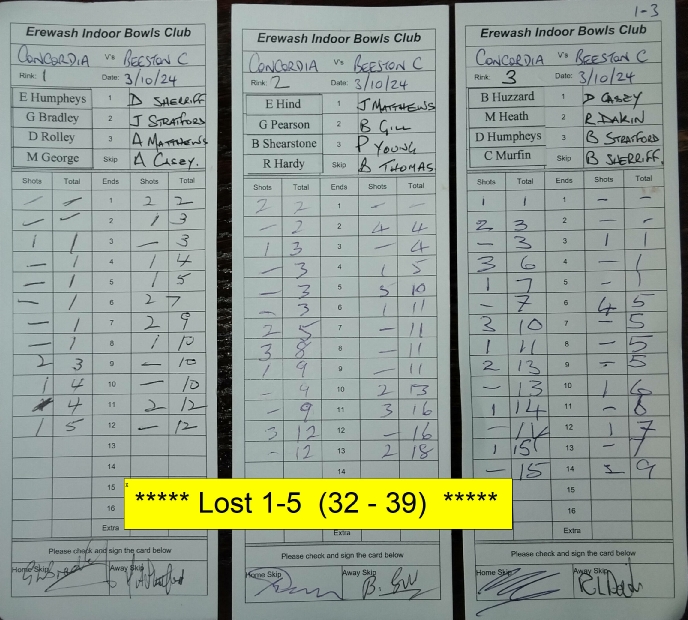 1-3
Erewash Indoor Bowls Club
CONCORDIA V's BEESTON C
Rink: 1 Date: 3/10/24
E Humpheys 1 D SHERRIFF
G Bradley 2 J STRATFORD
D Rolley 3 A MATTHEWS
M George Skip A CASEY.
Shots Total Ends Shots Total
– – 1 2 2
– – 2 1 3
1 1 3 – 3
– 1 4 1 4
– 1 5 1 5
– 1 6 2 7
– 1 7 2 9
– 1 8 1 10
2 3 9 – 10
1 4 10 – 10
4 11 2 12
1 5 12 – 12
13
14
15
16
Extra
Please check and sign the card below
Home Skip Away Skip
Erewash Indoor Bowls Club
CONCORDIA V's BEESTON C
Rink: 2 Date: 3/10/24
E Hind 1 J MATTHEWS
G Pearson 2 B GILL
B Shearstone 3 P YOUNG
R Hardy Skip B THOMAS
Shots Total Ends Shots Total
2 2 1 – –
– 2 2 4 4
1 3 3 – 4
– 3 4 1 5
– 3 5 5 10
– 3 6 1 11
2 5 7 – 11
3 8 8 – 11
1 9 9 – 11
– 9 10 2 13
– 9 11 3 16
3 12 12 – 16
– 12 13 2 18
14
Extra
Please check and sign the card below
Home Skip Away Skip
B. Gill
Erewash Indoor Bowls Club
CONCORDIA V's BEESTON C
Rink: 3 Date: 3/10/24
B Huzzard 1 D CASEY
M Heath 2 R DAKIN
D Humpheys 3 B STRATFORD
C Murfin Skip B SHERRIFF.
Shots Total Ends Shots Total
1 1 1 – –
2 3 2 – –
– 3 3 1 1
3 6 4 – 1
1 7 5 – 1
– 7 6 4 5
3 10 7 – 5
1 11 8 – 5
2 13 9 – 5
– 13 10 1 6
1 14 11 – 6
– 14 12 1 7
1 15 13 – 7
– 15 14 2 9
15
16
Extra
Please check and sign the card below
Home Skip Away Skip
***** Lost 1-5 (32 - 39) *****